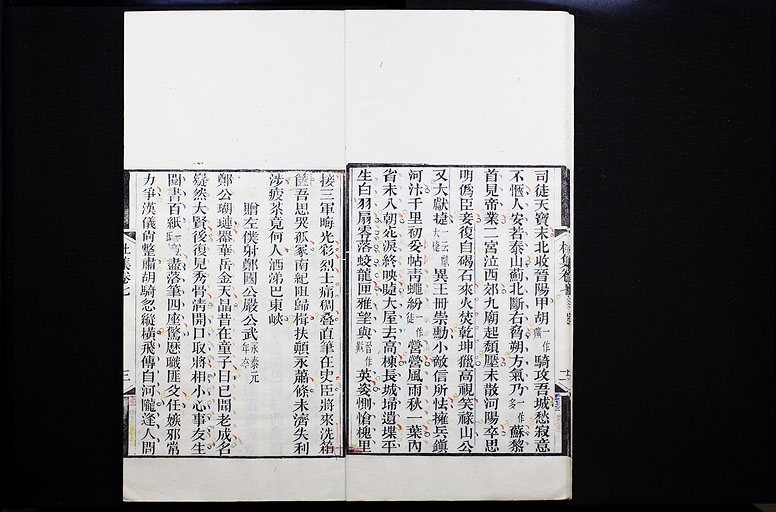 司徒天寶末北收晉陽甲胡一作騎攻吾城愁寂意
不愜人安若泰山薊北斷右脅朔方氣乃一作蘇黎
首見帝業二宮泣西郊九廟起頹壓未散河陽卒思
明偽臣妾復自碣石來火焚乾坤獵高視笑祿山公
又大獻捷異王冊崇勳小敵信所怯擁兵鎮
河汴千里初妥帖青蠅紛一作營營風雨秋一葉內
省未入朝死淚終映睫大屋去高棟長城掃遺堞平
生白羽扇零落蛟龍匣雅望與英姿惻愴槐里
接三軍晦光彩烈士痛稠疊直筆在史臣將來洗箱
篋吾思哭孤冢南紀阻歸楫扶顛永蕭條未濟失利
涉疲苶竟何人洒涕巴東峽
贈左僕射鄭國公嚴公武永泰元年卒
鄭公瑚璉器華岳金天晶昔在童子日已聞老成名
嶷然大賢後復見秀骨清開口取將相小心事友生
閱書百紙盡落筆四座驚歷職匪父任嫉邪常
力爭漢儀尚整肅胡騎忽縱橫飛傳自河隴逢人問
杜集卷七
三